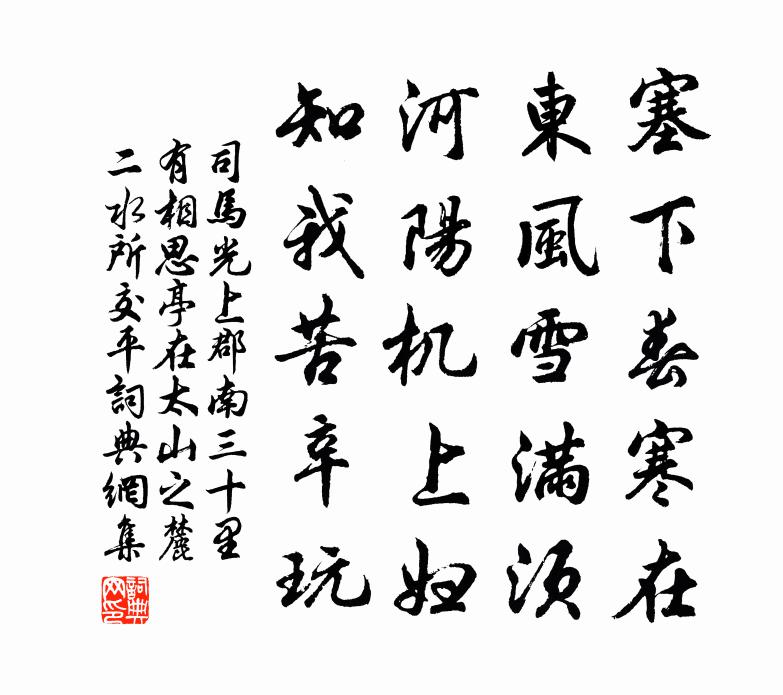 塞下春寒在
東風雪滿須
河陽机上妇
知我苦辛玩
司馬光上郡南三十里
有相思亭在太山之麓
二水所交平詞典網集
詞典网印